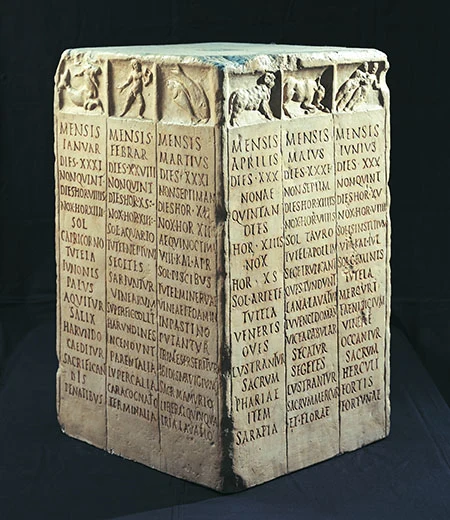 MENSIS
IANVAR
DIES·XXXI
NON·QVINT
DIES HOR VIIII
NOX HOR XIIII
SOL
CAPRICORNO
TVTELA
IVNONIS
PALVS
AQVITVR
SALIX
HARVNDO
CAEDITVR
SACRIFICAN
DIS
PENATIBVS
MENSIS
FEBRAR
DIES·XXVIII
NON QVINT
DIES HOR·XS
NOX HOR XIII
SOL AQVARIO
TVTEL NEPTVNI
SEGETES
SARIVNTVR
VINEARVM
SVPERFIC COLIT
HARVNDINES
INCENDVNT
PARENTALIA
LVPERCALIA
CARA COGNATIO
TERMINALIA
MENSIS
MARTIVS
DIES·XXXI
NON SEPTIMAN
DIES HOR·XII
NOX HOR XII
AEQVINOCTIVM
VIII·KAL·APR
SOL·PISCIBVS
TVTEL MINERVAE
VINEAE PEDAMIN
IN PASTINO
PVTANTVR
TRIMESTR SERITVR
ISIDIS NAVIGIVM
SACR MAMVRIO
LIBERAL QVINQVA
TRIA LAVATIO
MENSIS
APRILIS
DIES·XXX
NONAE
QVINTAN
DIES
HOR·XIIIS
NOX
HOR·XS
SOL·ARIETE
TVTELA
VENERIS
OVES
LVSTRANTVR
SACRVM
PHARIAE
ITEM
SARAPIA
MENSIS
MAIVS
DIES·XXXI
NON SEPTIM
DIES HOR XIIIIS
NOX HOR VIIIIS
SOL TAVRO
TVTEL APOLLIN
SEGET RVNCANT
OVES TONDENT
LANA LAVATVR
IVVENCI DOMANT
VICEA PABVLAR
SECATVR
SEGETES
LVSTRANTVR
SACRVM MERCVR
ET·FLORAE
MENSIS
IVNIVS
DIES·XXX
NON QVINT
DIES HOR XV
NOX HOR VIIII
SOLIS INSTITIVM
VIII KAL IVL
SOL GEMINIS
TVTELA
MERCVRI
FAENISICIVM
VINEAE
OCCANTVR
SACRVM
HERCVLI
FORTIS
FORTVNAE